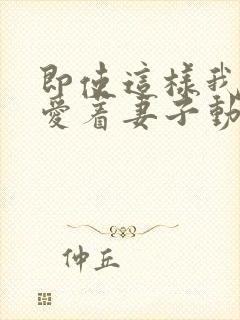 即使這樣我
愛着妻子動
仲丘